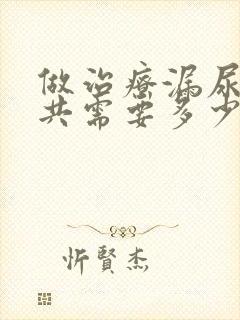 做治疗漏尿
共需要多少
忻賢杰